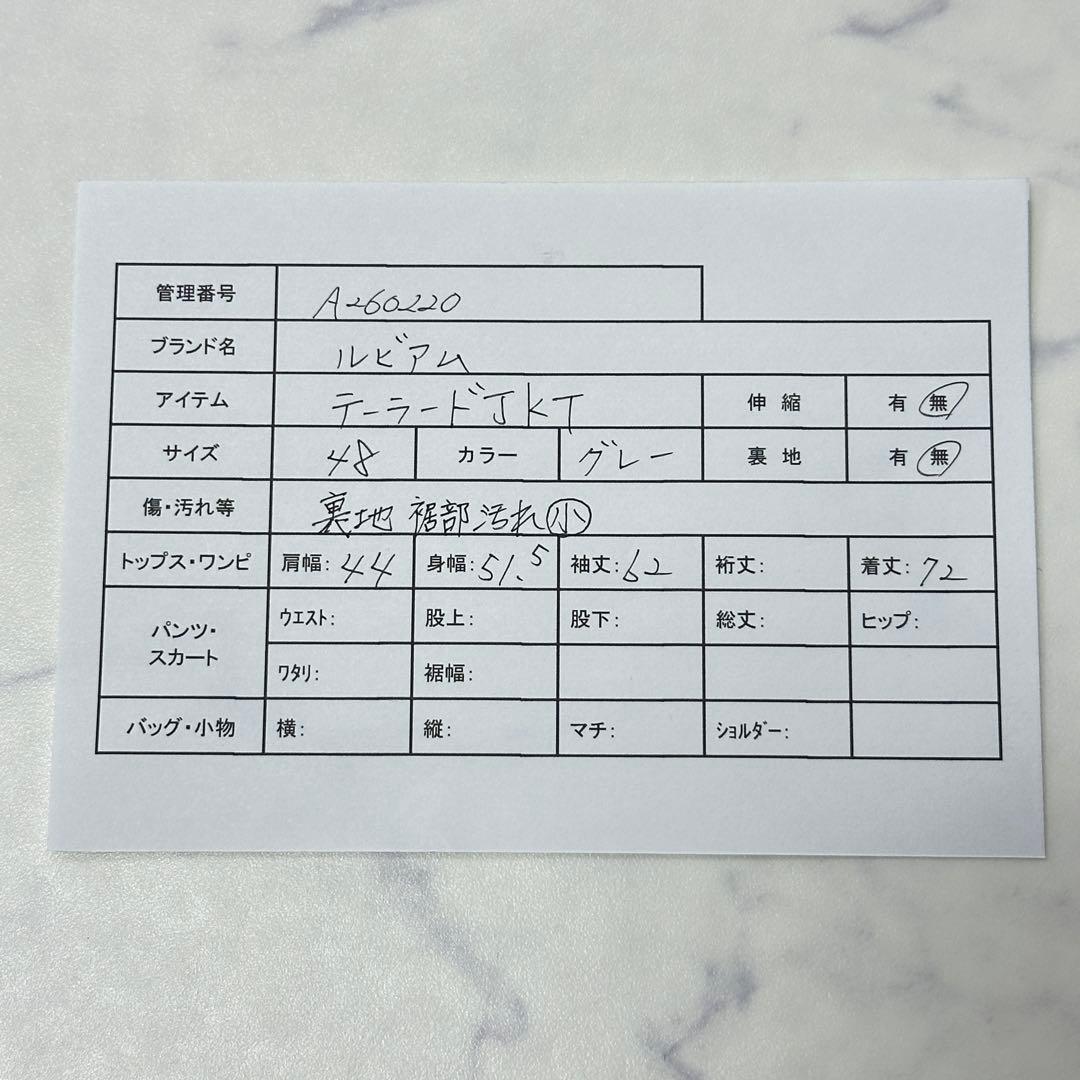 管理番号 A260220
ブランド名 ルビアム
アイテム テーラードJKT 伸縮 有 無
サイズ 48 カラー グレー 裏地 有 無
傷・汚れ等 裏地 裾部汚れ小
トップス・ワンピ 肩幅: 44 身幅: 51.5 袖丈: 62 裄丈: 着丈: 72
パンツ・スカート ウエスト: 股上: 股下: 総丈: ヒップ:
ワタリ: 裾幅:
バッグ・小物 横: 縦: マチ: ショルダー: